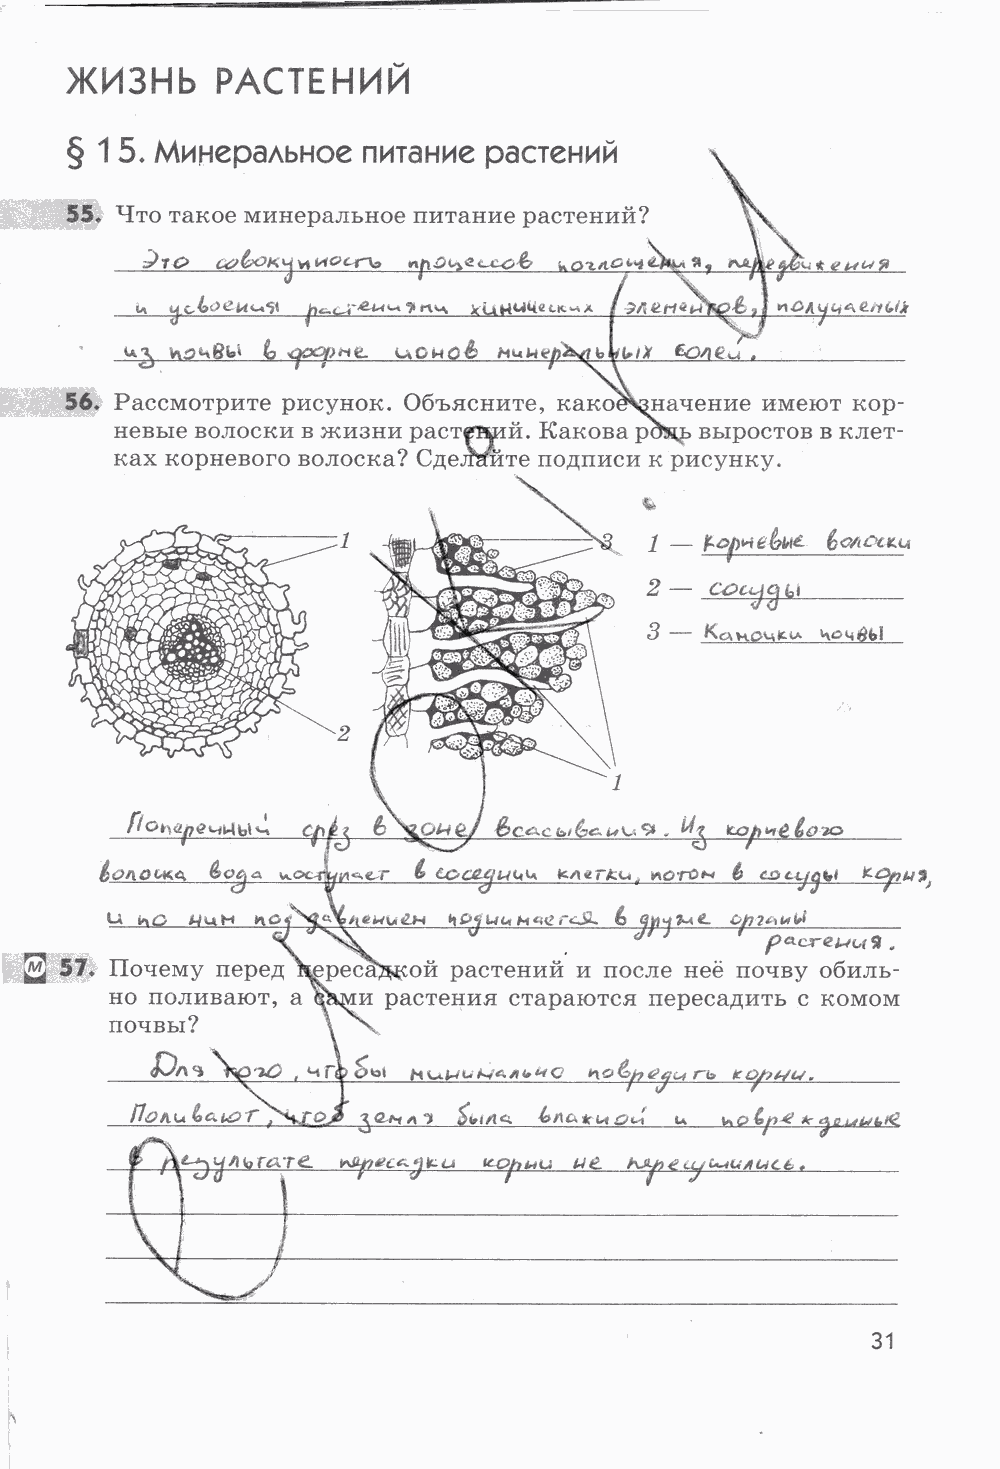 ЖИЗНЬ РАСТЕНИЙ
§ 15. Минеральное питание растений
55. Что такое минеральное питание растений?
Это совокупность процессов поглощения, передвижения
и усвоения растениями химических элементов, получаемых
из почвы в форме ионов минеральных солей.
56. Рассмотрите рисунок. Объясните, какое значение имеют кор-
невые волоски в жизни растений. Какова роль выростов в клет-
ках корневого волоска? Сделайте подписи к рисунку.
1
3
1 — корневые волоски
2 — сосуды
3 — Камочки почвы
2
1
Поперечный срез в зоне всасывания. Из корневого
волоска вода поступает в соседнии клетки, потом в сосуды корня,
и по ним под давлением поднимается в другие органы
растения.
М 57. Почему перед пересадкой растений и после неё почву обиль-
но поливают, а сами растения стараются пересадить с комом
почвы?
Для того, что бы минимально повредить корни.
Поливают, чтоб земля была влажной и поврежденные
в результате пересадки корни не пересушились.
31